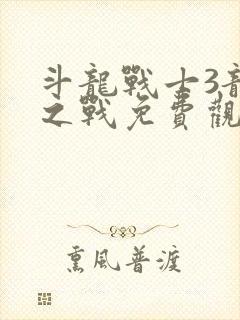 斗龍戰士3龍
之戰免費觀
熏風普渡